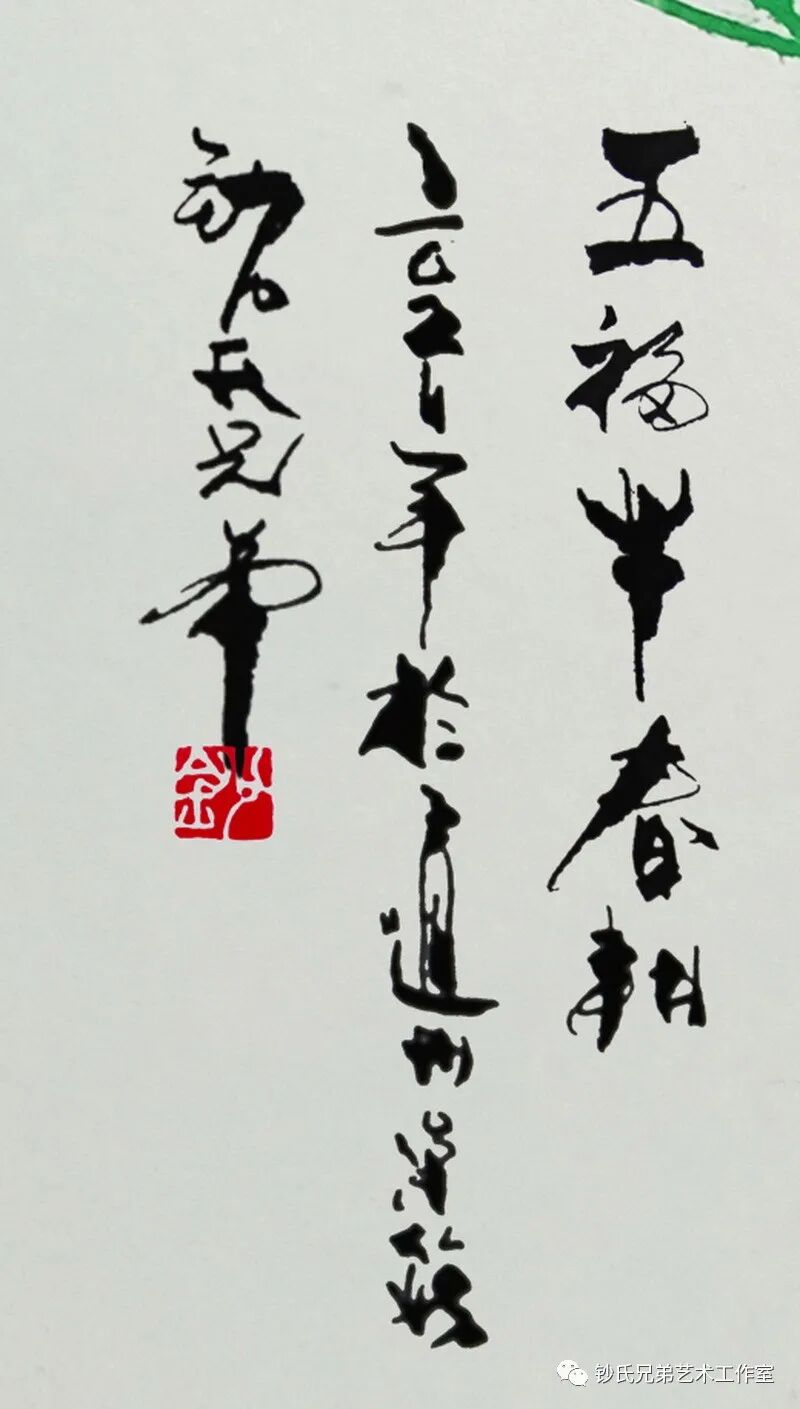 五福牛春耕
二〇二一年於通州
鈔氏兄弟
鈔
钞氏兄弟艺术工作室